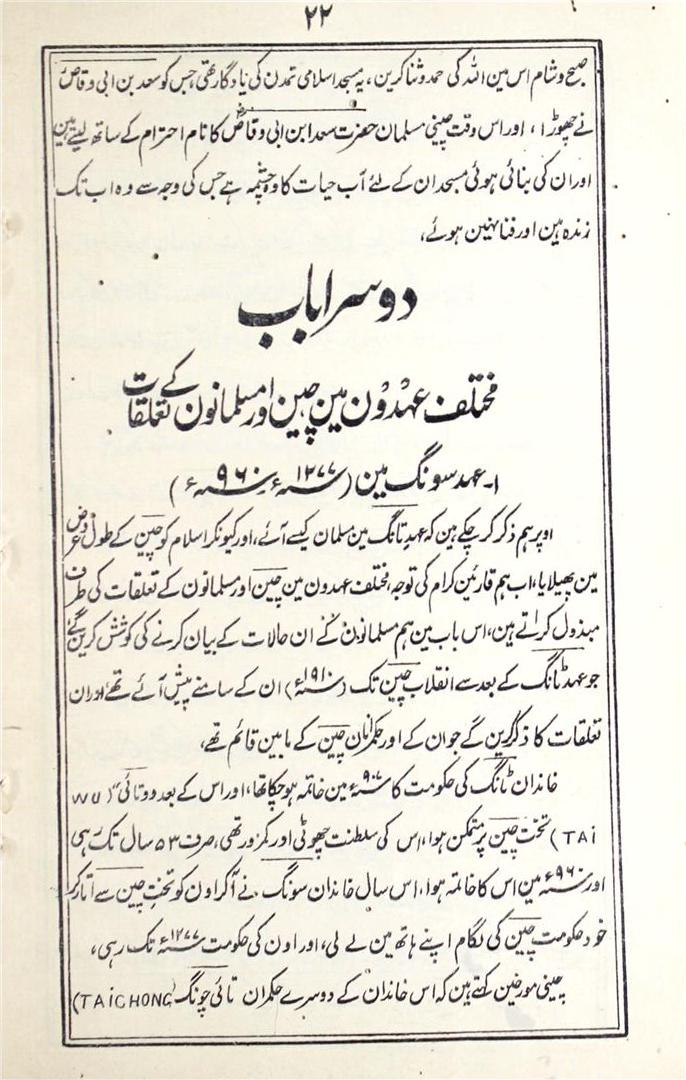 ۲۲
صبح و شام اس مین اللہ کی حمد و ثنا کرین، یہ مسجد اسلامی تمدن کی یادگار تھی جس کو سعد بن ابی وقاصؓ
نے چھوڑا، اور اس وقت چینی مسلمان حضرت سعد ابن ابی وقاصؓ کا نام احترام کے ساتھ لیتے ہین
اور ان کی بنائی ہوئی مسجد ان کے لئے آب حیات کا وہ چشمہ ہے جس کی وجہ سے وہ اب تک
زندہ ہین اور فنا نہین ہوئے،
دوسرا باب
مختلف عہدون مین چین اور مسلمانون کے تعلقات
۱۔ عہد سونگ مین (۱۲۷۷ء ۔ ۹۶۰ء)
اوپر ہم ذکر کر چکے ہین کہ عہد تانگ مین مسلمان کیسے آئے، اور کیونکر اسلام کو چین کے طول و عرض
مین پھیلایا، اب ہم قارئین کرام کی توجہ، مختلف عہدون مین چین اور مسلمانون کے تعلقات کی طرف
مبذول کراتے ہین، اس باب مین ہم مسلمانون کے ان حالات کے بیان کرنے کی کوشش کرین گے
جو عہد ٹانگ کے بعد سے انقلاب چین تک (۱۹۱۰ء) ان کے سامنے پیش آئے تھے اور ان
تعلقات کا ذکر کرین گے جو ان کے اور حکمرانان چین کے مابین قائم تھے،
خاندان ٹانگ کی حکومت کا ۹۰۷ء مین خاتمہ ہو چکا تھا، اور اس کے بعد دوتائی (WU
TAI) تخت چین پر متمکن ہوا، اس کی سلطنت چھوٹی اور کمزور تھی، صرف ۵۳ سال تک رہی
اور ۹۶۰ء مین اس کا خاتمہ ہوا، اس سال خاندان سونگ نے آکر اون کو تخت چین سے اتار کر
خود حکومت چین کی لگام اپنے ہاتھ مین لے لی، اور اون کی حکومت ۱۲۷۷ء تک رہی،
چینی مورخین کہتے ہین کہ اس خاندان کے دوسرے حکمران تائی چونگ (TAICHONG)